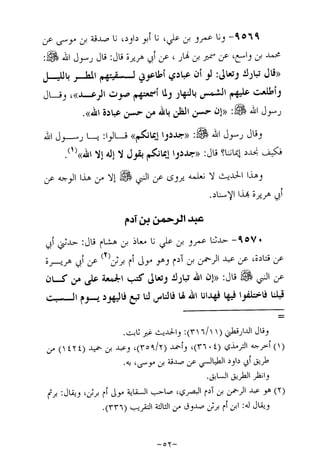 ٩٥٦٩- ونا عمرو بن علي، نا أبو داود، نا صدقة بن موسى عن
محمد بن واسع، عن سمير بن نهار، عن أبي هريرة قال: قال رسول الله ﷺ:
«قال تبارك وتعالى: لو أن عبادي أطاعوني لسقيتهم المطـــر بالليـــل
وأطلعت عليهم الشمس بالنهار ولما أسمعتهم صوت الرعـــد»، وقـــال
رسول الله ﷺ: «إن حسن الظن بالله من حسن عبادة الله».
وقال رسول الله ﷺ: «جددوا إيمانكم» قـــالوا: يـــا رســـول الله
فكيف نجدد إيماننا؟ قال: «جددوا إيمانكم بقول لا إله إلا الله»(١).
وهذا الحديث لا نعلمه يروى عن النبي ﷺ إلا من هذا الوجه عن
أبي هريرة بهذا الإسناد.
عبد الرحمن بن آدم
٩٥٧٠- حدثنا عمرو بن علي نا معاذ بن هشام قال: حدثني أبي
عن قتادة، عن عبد الرحمن بن آدم وهو مولى أم برثن(٢) عن أبي هريـــرة
عن النبي ﷺ قال: «إن الله تبارك وتعالى كتب الجمعة على من كـــان
قبلنا فاختلفوا فيها وهدانا الله لها فالناس لنا تبع فاليهود يـــوم الســـبت
=
وقال الدارقطني (٣١٦/١١): والحديث غير ثابت.
(١) أخرجه الترمذي (٣٦٠٤)، وأحمد (٣٥٩/٢)، وعبد بن حميد (١٤٢٤) من
طريق أبي داود الطيالسي عن صدقة بن موسى، به.
وانظر الطريق السابق.
(٢) هو عبد الرحمن بن آدم البصري، صاحب السقاية مولى أم برثن، ويقال: برثم
ويقال له: ابن أم برثن صدوق من الثالثة التقريب (٣٣٦).
-٥٢-